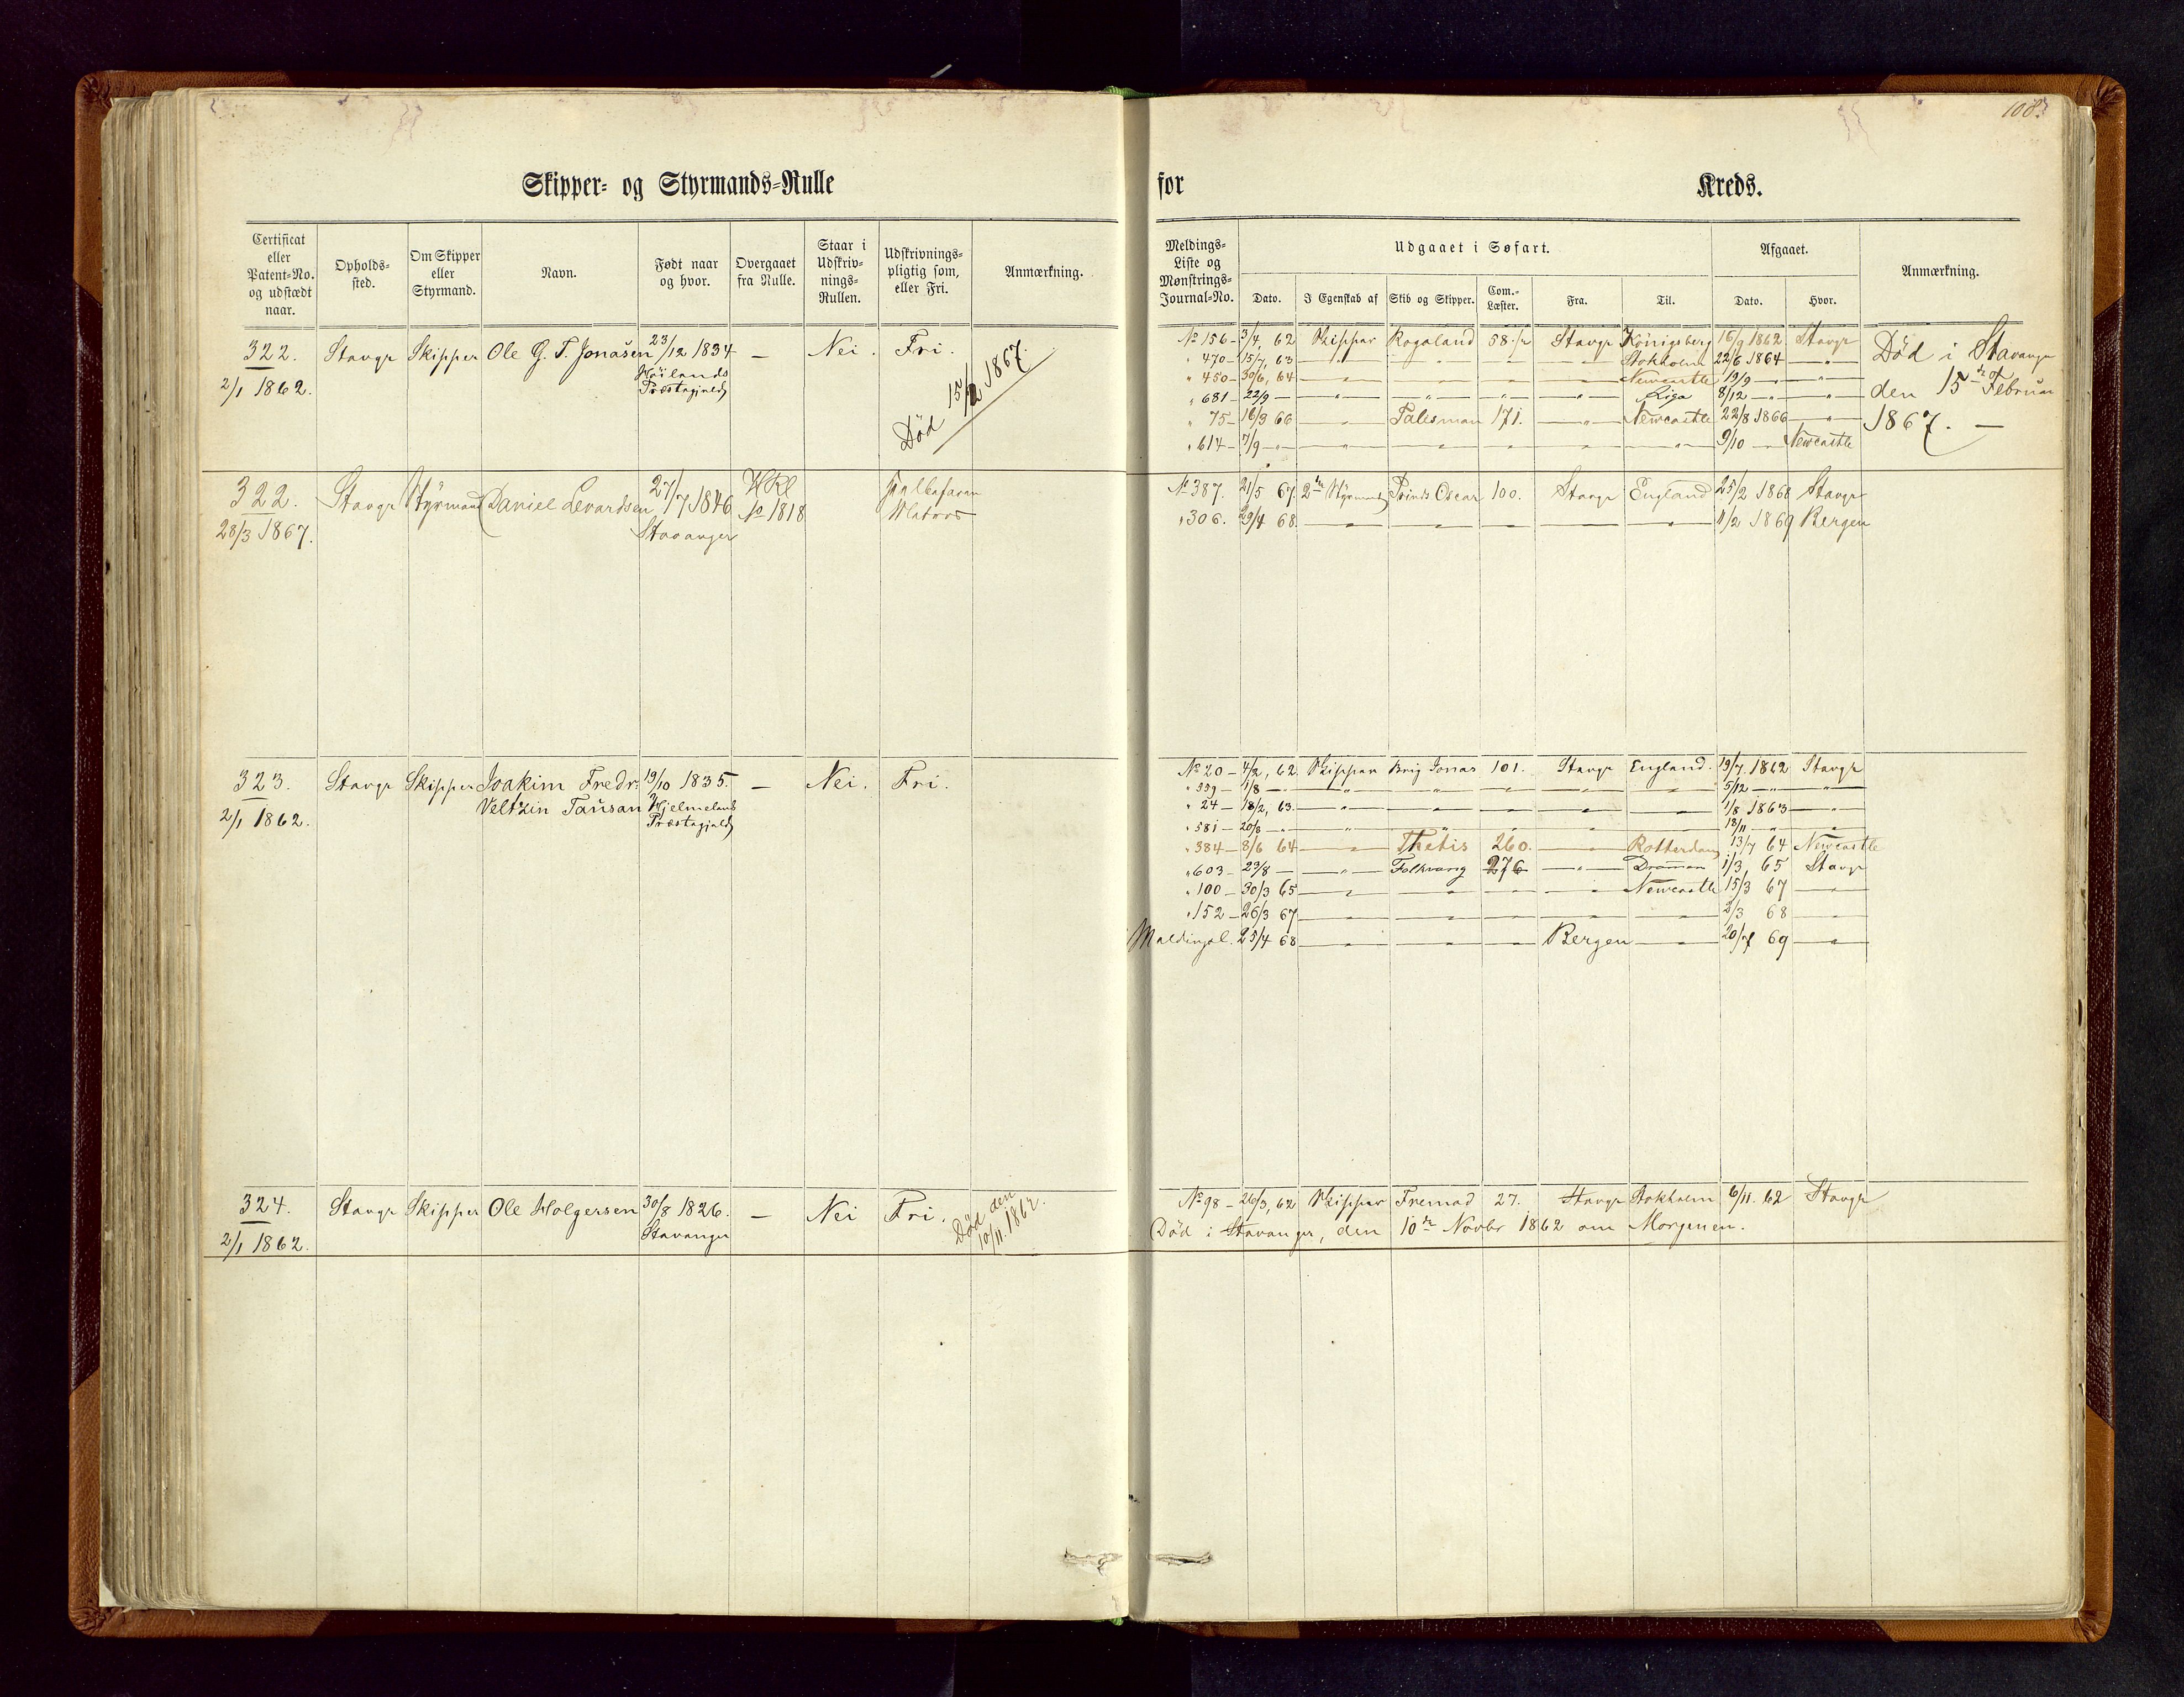 108.
Skipper- og Styrmands-Rulle for Kreds.
Certificat eller Patent-No. og udstædt naar. Opholdssted. Om Skipper eller Styrmand. Navn. Født naar og hvor. Overgaaet fra Rulle. Staar i Udskrivnings-Rullen. Udskrivningspligtig som, eller Fri. Anmærkning.
Meldings-Liste og Mønstrings-Journal-No. Udgaaet i Søfart. Afgaaet. Anmærkning.
Dato. I Egenskab af Skib og Skipper. Com.-Læster. Fra. Til. Dato. Hvor.
322. Stavgr Skipper Ole G. T. Jonasen 23/12 1834 — Nei. Fri.
2/1 1862. Höilands Præstegjeld
Død 15/2 1867.
No 156 – 3/4, 62 Skipper Rogaland 58 1/2 Stavgr Königsberg 16/9 1862 Stavgr
" 470 – 15/7, 63 " " " " Stokholm 22/6 1864 "
" 450 – 30/6, 64 " " " " Newcastle 19/9 – " "
" 681 – 22/9 – " " " " Liga 8/12 – " "
" 75 – 16/3 66 " Talisman 171. " Newcastle 22/8 1866 "
" 614 – 7/9 – " " " " " " 9/10 – Newcastle
Død i Stavanger
den 15de Februar
1867. —
322. Stavgr Styrmand Daniel Levardsen 27/7 1846
28/3 1867. Stavanger
No 1818
No 387. 21/5 67. 2den Styrmand Prinds Oscar 100. Stavgr England 25/2 1868 Stavgr
" 306. 29/4 68. " " " " " 11/2 1869 Bergen
323. Stavgr Skipper Joakim Fredr. 19/10 1835. — Nei. Fri.
2/1 1862. Veltzin Tausan Hjelmelands Præstegjeld
No 20 – 4/2, 62. Skipper Brig Jonas 101. Stavgr England. 19/7. 1862 Stavgr
" 339 – 1/8 – " " " " " 5/12 – " "
" 24 – 18/2, 63. " " " " " 1/8. 1863 "
" 581 – 20/8 – " " " " " " 18/11 " "
" 384 – 8/6 64 " Thetis 260. " Rotterdam 13/7 64 Newcastle
" 603 – 23/8 – " Folkvang 276 " Drammen 1/3, 65 Stavgr
" 100 – 30/3 65 " " " " Newcastle 15/3 67 "
" 152 – 26/3 67 " " " " " 2/3 68 "
Meldingsl. 25/4 68 " " " Bergen " 20/7 69 "
324. Stavgr Skipper Ole Holgersen 30/8 1826. — Nei Fri.
2/1 1862. Stavanger
Død den
10/11. 1862.
No 98 – 26/3, 62 Skipper Fremad 27. Stavgr Stokholm 6/11. 62 Stavgr
Død i Stavanger, den 10de Novbr 1862 om Morgenen.